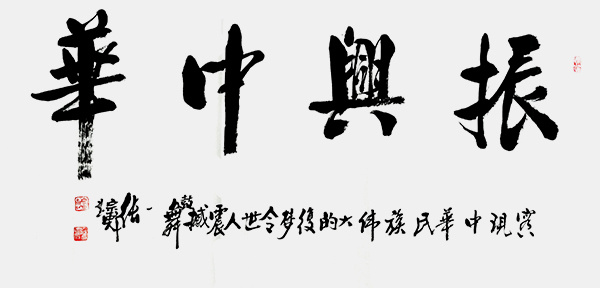 振興中華
實現中華民族伟大的復梦令世人震撼鼓舞